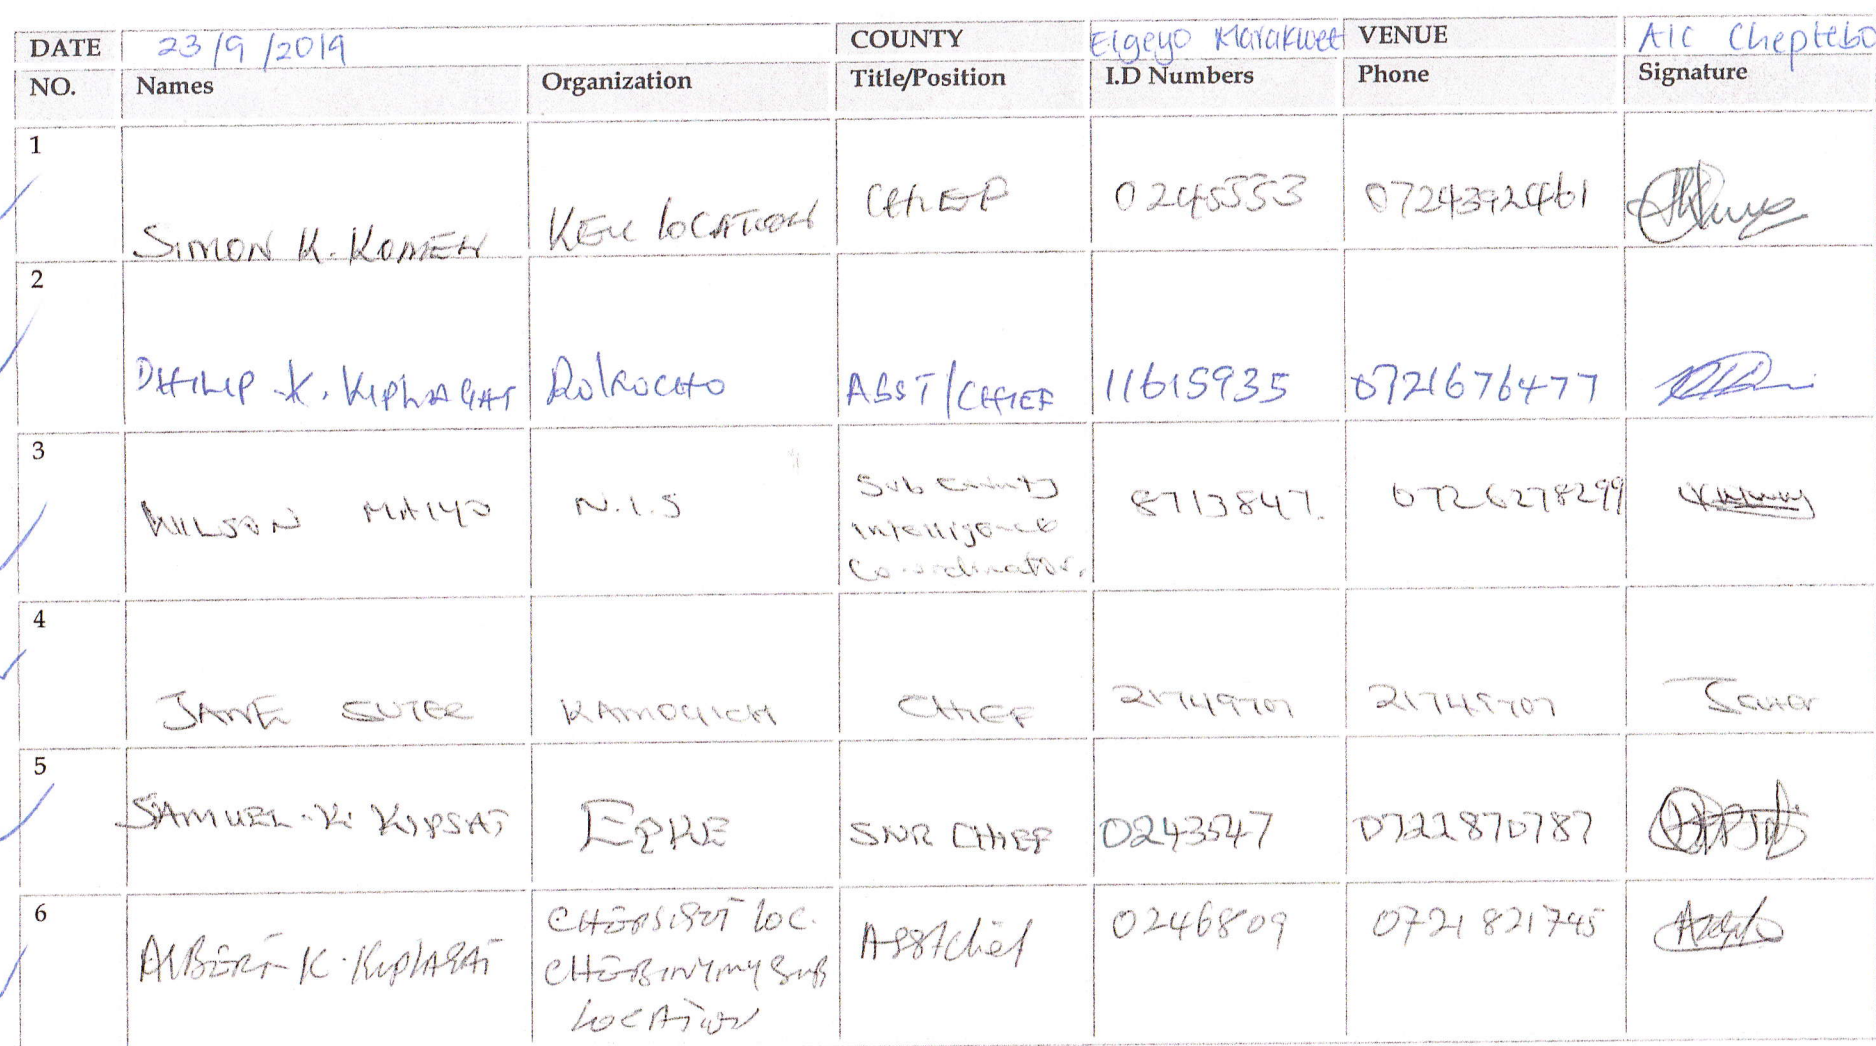 DATE 23/9/2019 COUNTY Elgeyo Marakwet VENUE AIC Cheptebo
NO. Names Organization Title/Position I.D Numbers Phone Signature
1 SIMON K. KOMEN KEU LOCATION CHIEF 0245553
2 PHILIP K. KIPLAGAT ASST/CHIEF 11615935 0721676477
3 WILSON MAIYO N.I.S Sub County Intelligence Co-ordinator. 8713847. 0726278299
4 JANE SUTER CHIEF
5 SAMUEL K. KIPSAT EPKE SNR CHIEF 0243547 0722870787
6 ALBERT K. KIPLAGAT LOC. SUB LOCATION Asst chief 0246809 0721821745